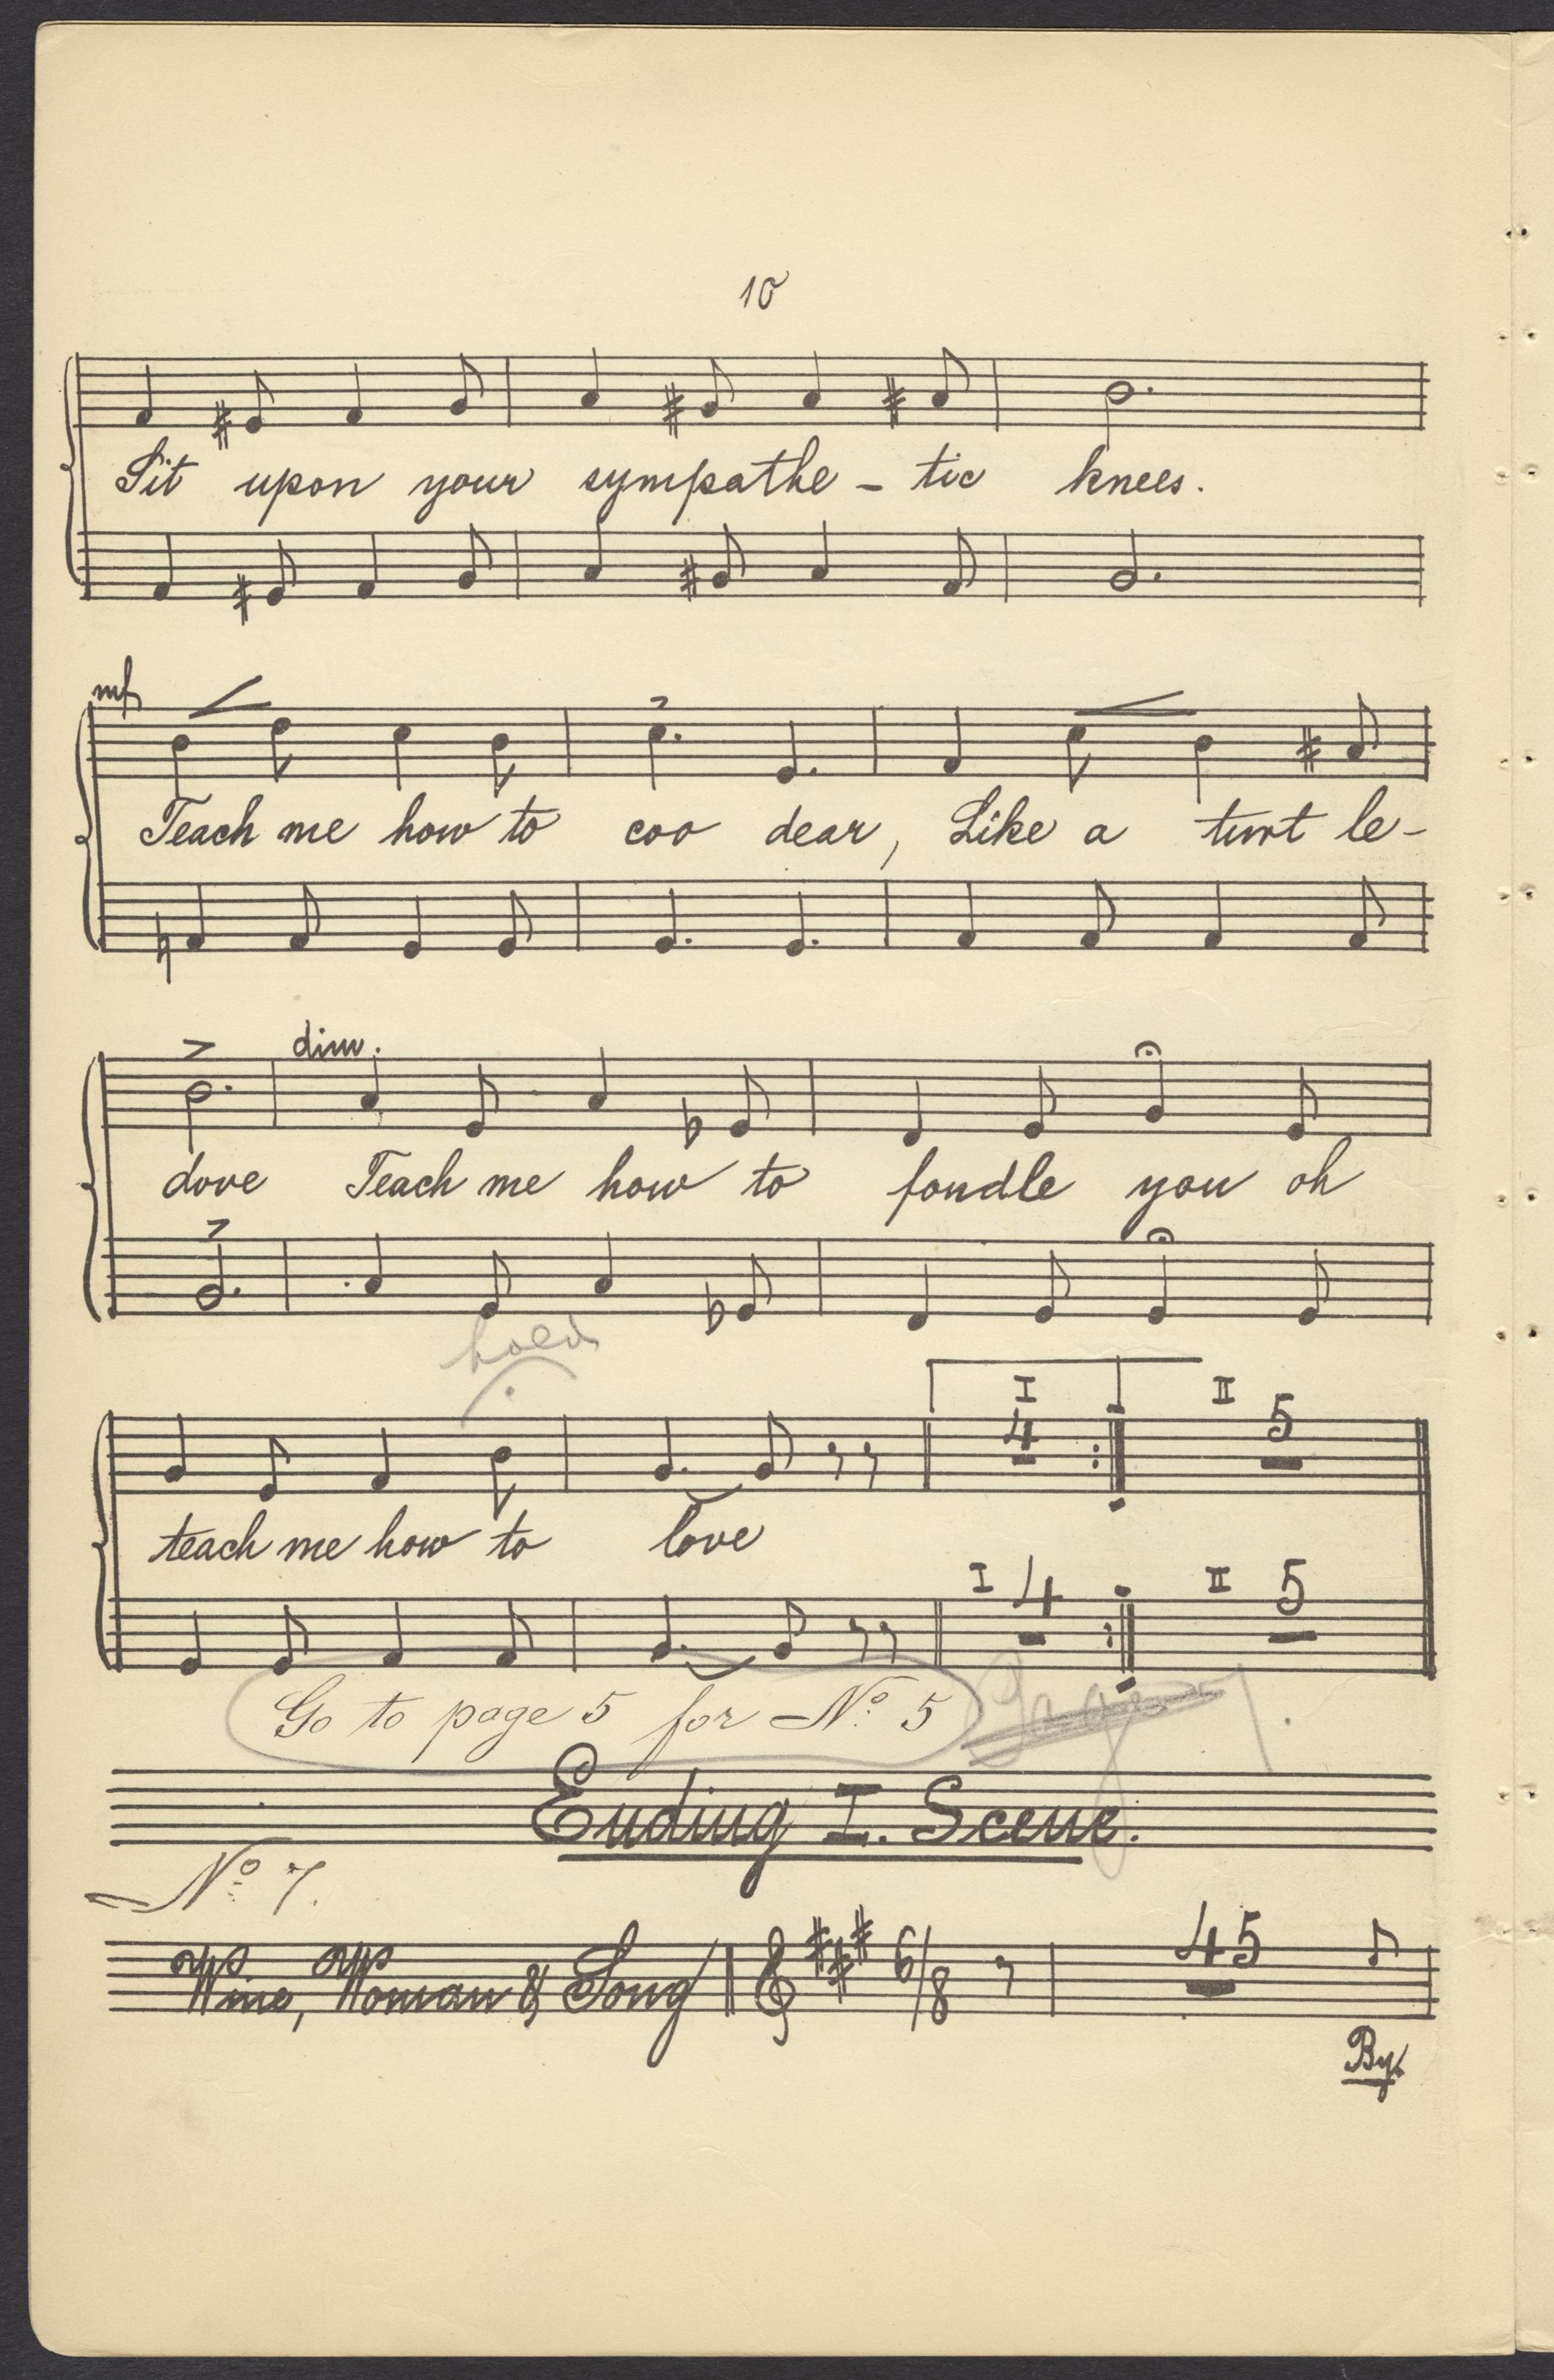 10
Sit upon your sympathe - tic knees.
mf
Teach me how to coo dear, Like a turt le-
dim.
dove Teach me how to fondle you oh
hold
I II
4 5
teach me how to love
I 4 II 5
Go to page 5 for No. 5
Ending I. Scene.
No. 7.
Wine, Woman & Song 6/8 45
By.